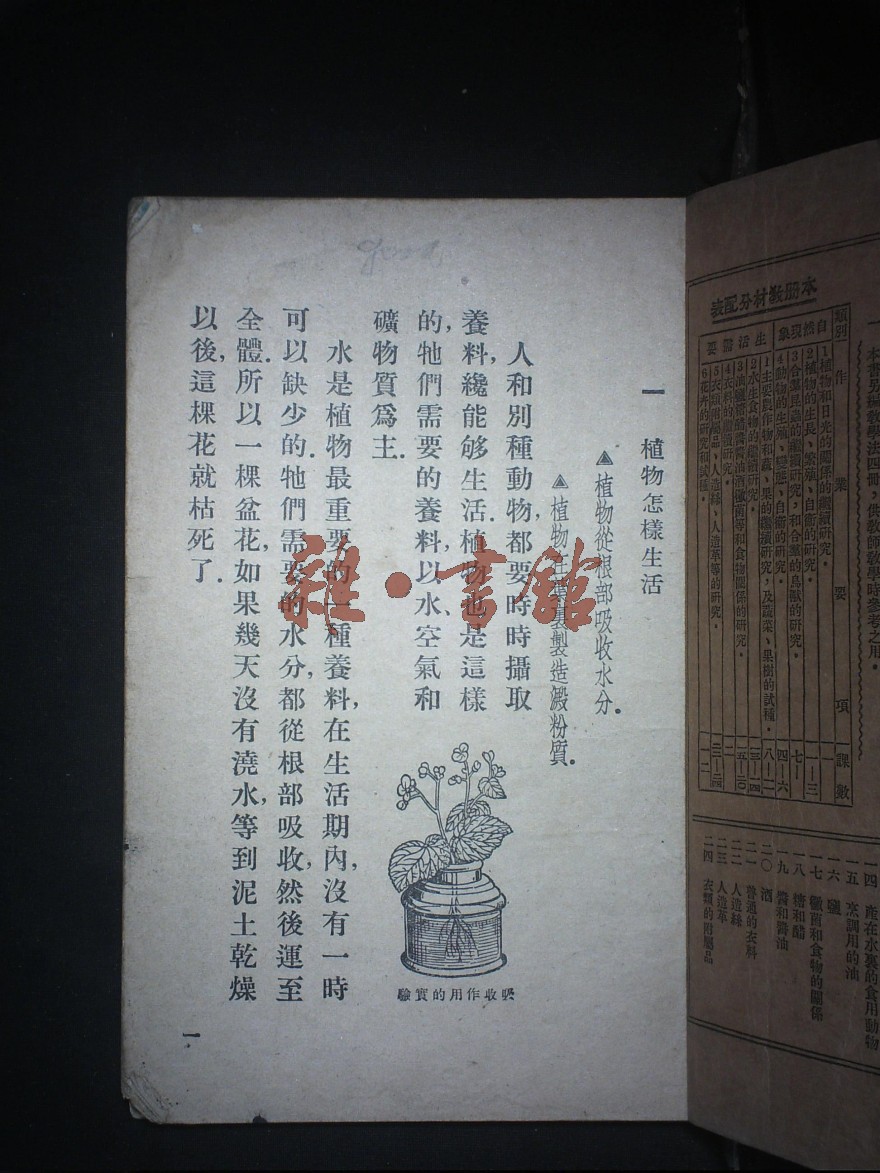 本書另編教學法四冊，供教師教學時參考之用。
本册教材分配表
類別
作業要項
課數
自然現象
1植物和日光
一
2植物的生長、繁殖、自衛的研究。
一一—三
七—
四—六
生活需要
八—一
一三—一四
一五—二〇
4衣料的研究。
二一
人造絲、人造革等的研究。
二二—二四
6花卉的研究和試種。
一二
一四 產在水裏的食用動物
一五 烹調用的油
一六 鹽
一七 黴菌和食物的關係
一八 糖和醋
一九 醬和醬油
二〇 酒
二一 普通的衣料
二二 人造絲
二三 人造革
二四 衣類的附屬品
一 植物怎樣生活
▲植物從根部吸收水分.
▲植物在葉裏製造澱粉質.
人和別種動物,都要時時攝取
養料,纔能够生活.植物也是這樣
的,牠們需要的養料,以水、空氣和
礦物質爲主.
水是植物最重要的一種養料,在生活期內,沒有一時
可以缺少的.牠們需要的水分,都從根部吸收,然後運至
全體.所以一棵盆花,如果幾天沒有澆水,等到泥土乾燥
以後,這棵花就枯死了.
吸收作用的實驗
一
雜·書館